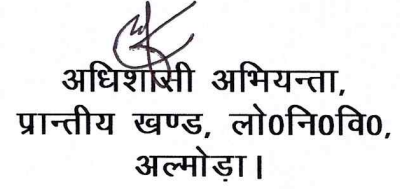 अधिशासी अभियन्ता,
प्रान्तीय खण्ड, लो0नि0वि0,
अल्मोड़ा।